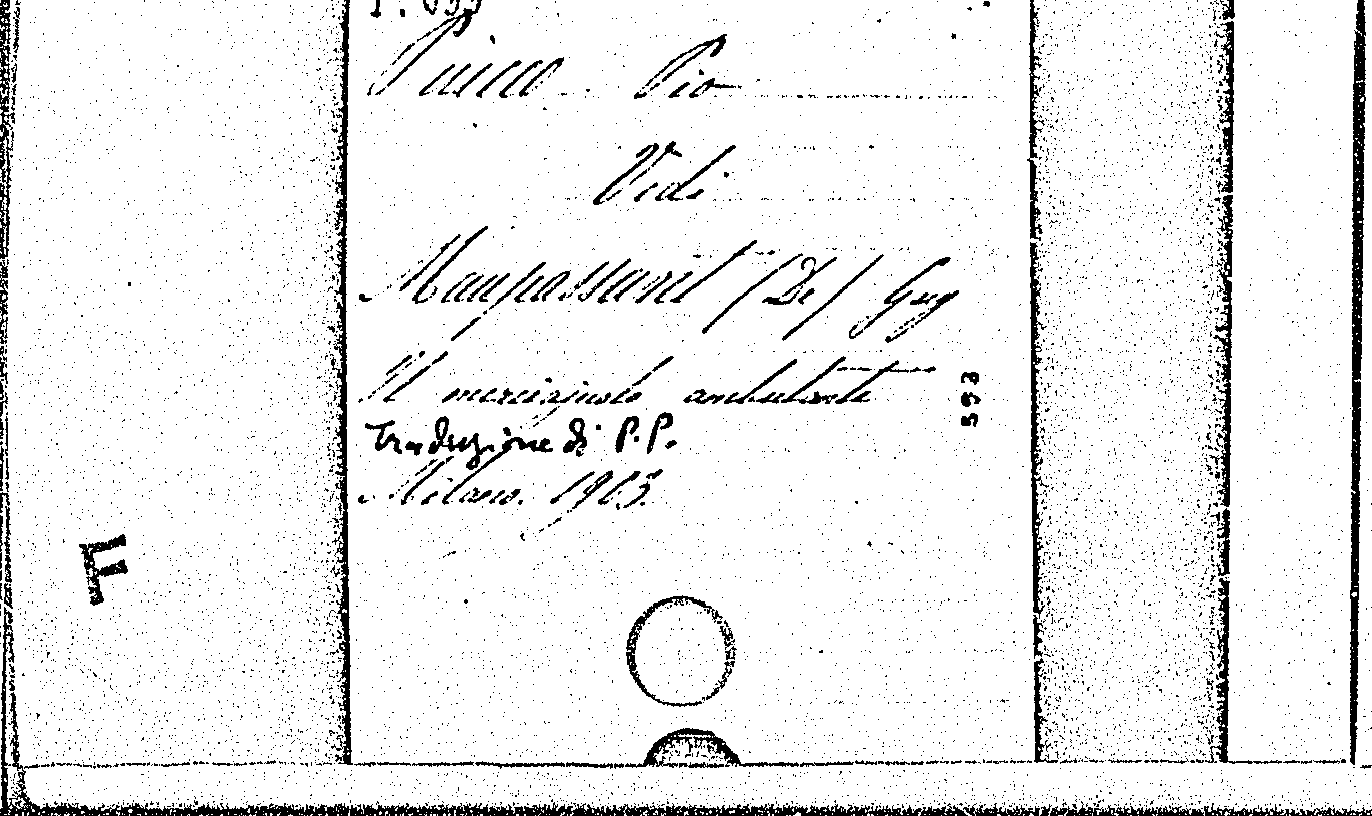 Pio
Vedi
Maupassant (De) Guy
Il merciajuolo ambulante
593
Traduzione di P.P.
Milano. 1905.
F